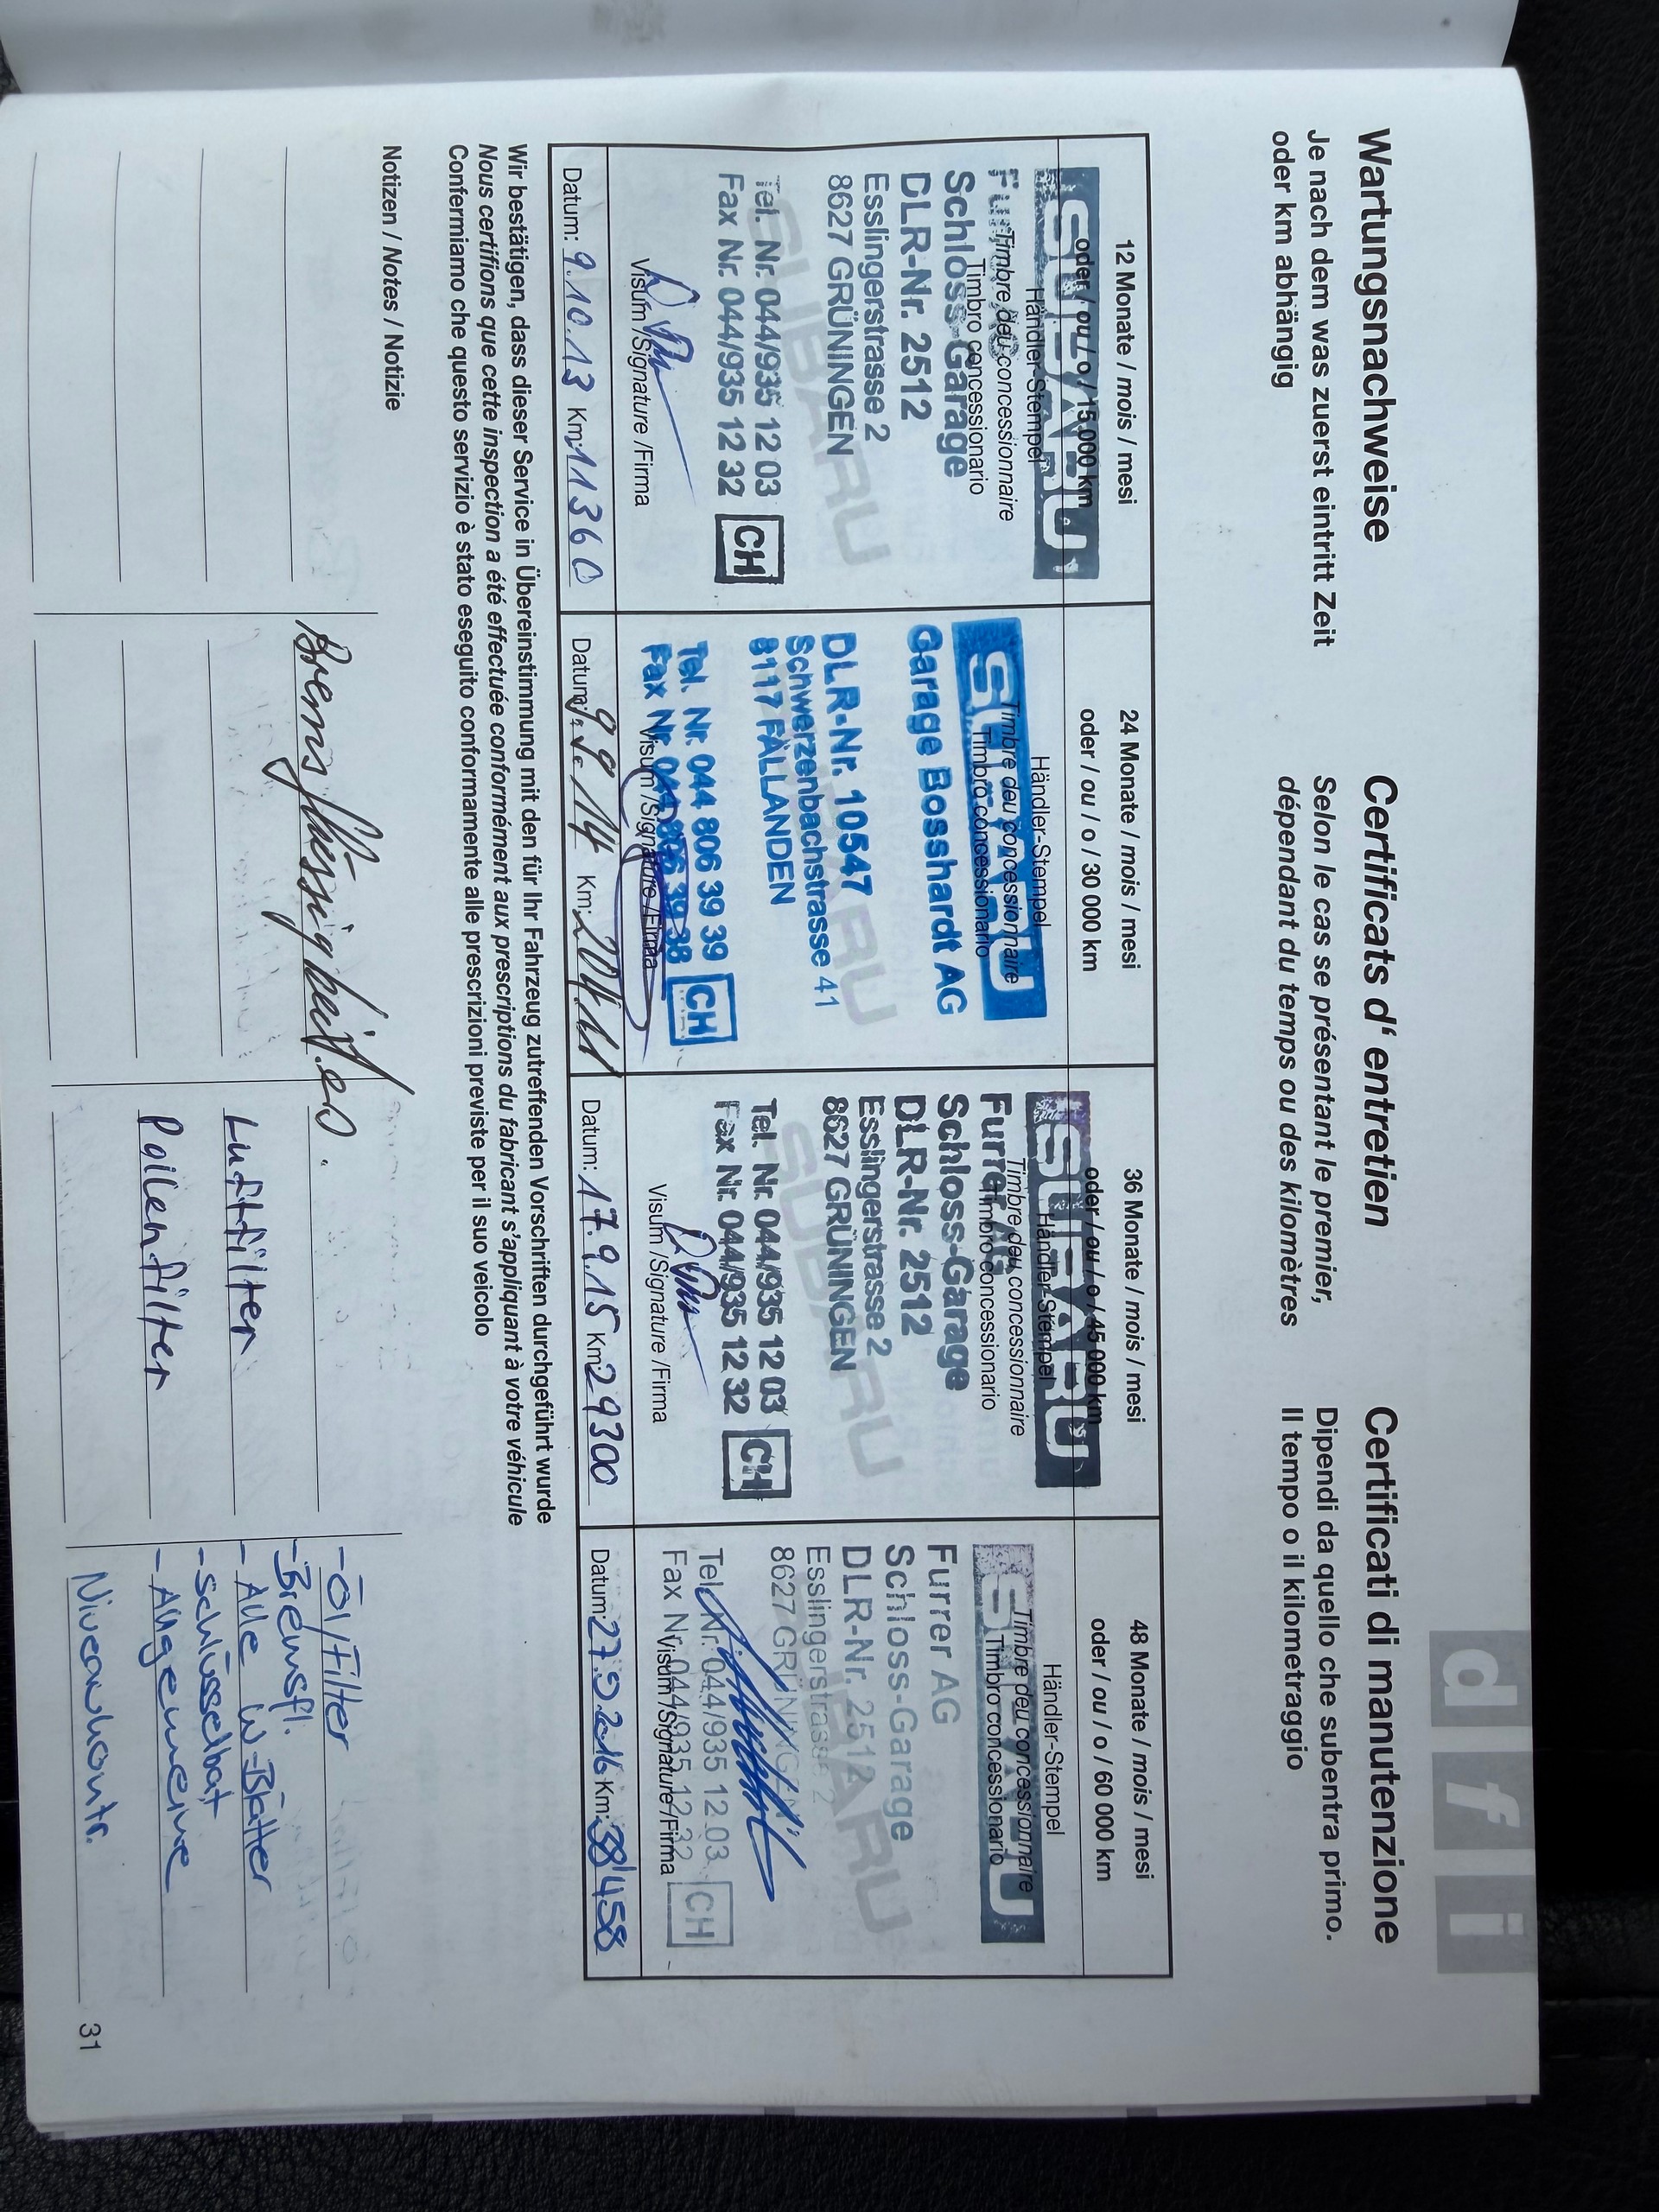 d f i
Wartungsnachweise
Je nach dem was zuerst eintritt Zeit
oder km abhängig
Certificats d‘ entretien
Selon le cas se présentant le premier,
dépendant du temps ou des kilomètres
Certificati di manutenzione
Dipendi da quello che subentra primo.
Il tempo o il kilometraggio
12 Monate / mois / mesi
oder / ou / o / 15 000 km
Händler-Stempel
Timbre deu concessionnaire
Timbro concessionario
SUBARU
Schloss-Garage
DLR-Nr. 2512
Esslingerstrasse 2
8627 GRÜNINGEN
SUBARU
Tel. Nr. 044/935 12 03
Fax Nr. 044/935 12 32 CH
Visum /Signature /Firma
Datum: 9.10.13 Km: 11360
24 Monate / mois / mesi
oder / ou / o / 30 000 km
Händler-Stempel
Timbre deu concessionnaire
Timbro concessionario
SUBARU
Garage Bosshardt AG
DLR-Nr. 10547
Schwerzenbachstrasse 41
8117 FÄLLANDEN
SUBARU
Tel. Nr. 044 806 39 39
Fax Nr. 044 806 39 38 CH
Visum /Signature /Firma
Datum: 9.9.14 Km:
36 Monate / mois / mesi
oder / ou / o / 45 000 km
Händler-Stempel
Timbre deu concessionnaire
Timbro concessionario
SUBARU
Furrer AG
Schloss-Garage
DLR-Nr. 2512
Esslingerstrasse 2
8627 GRÜNINGEN
SUBARU
Tel. Nr. 044/935 12 03
Fax Nr. 044/935 12 32 CH
Visum /Signature /Firma
Datum: 17.9.15 Km: 29300
48 Monate / mois / mesi
oder / ou / o / 60 000 km
Händler-Stempel
Timbre deu concessionnaire
Timbro concessionario
SUBARU
Furrer AG
Schloss-Garage
DLR-Nr. 2512
Esslingerstrasse 2
8627 GRÜNINGEN
SUBARU
Tel. Nr. 044/935 12 03
Fax Nr. 044/935 12 32 CH
Visum /Signature /Firma
Datum: 27.9.2016 Km: 38'458
Wir bestätigen, dass dieser Service in Übereinstimmung mit den für Ihr Fahrzeug zutreffenden Vorschriften durchgeführt wurde
Nous certifions que cette inspection a été effectuée conformément aux prescriptions du fabricant s'appliquant à votre véhicule
Confermiamo che questo servizio è stato eseguito conformamente alle prescrizioni previste per il suo veicolo
Notizen / Notes / Notizie
Bremsflüssigkeit
Luftfilter
Pollenfilter
- Öl/Filter
- Bremsfl.
- Alle W-Blätter
- Schlüsselbat
- Allgemeine
Niveaukontr.
31